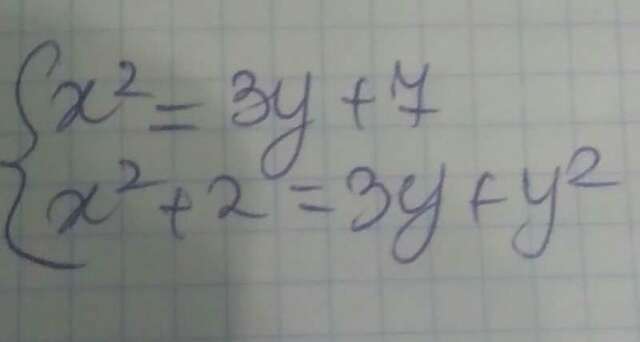 x² = 3y + 7
x² + 2 = 3y + y²